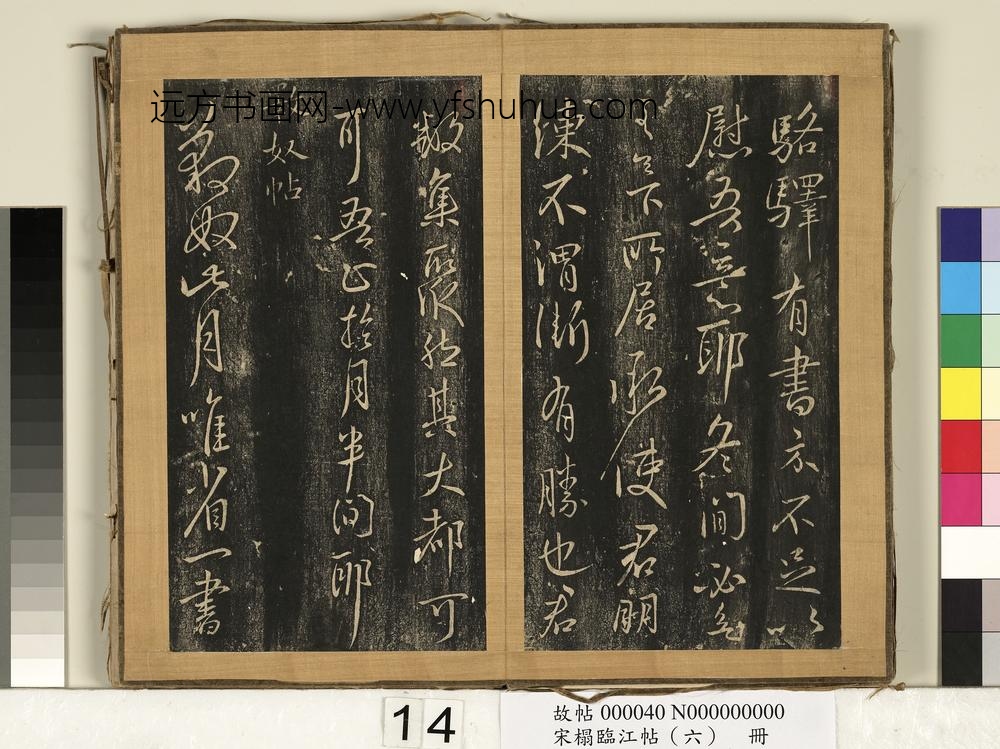 远方书画网-www.yfshuhua.com
駱驛有書亦不足以
慰吾意耶冬間必
下所居承使君明
練不謂漸有勝也君
散集聚然其大都可
耳吾正拾月半間耶
奴帖
敬奴此月唯省一書
14
故帖 000040 N000000000
宋榻臨江帖（六） 冊